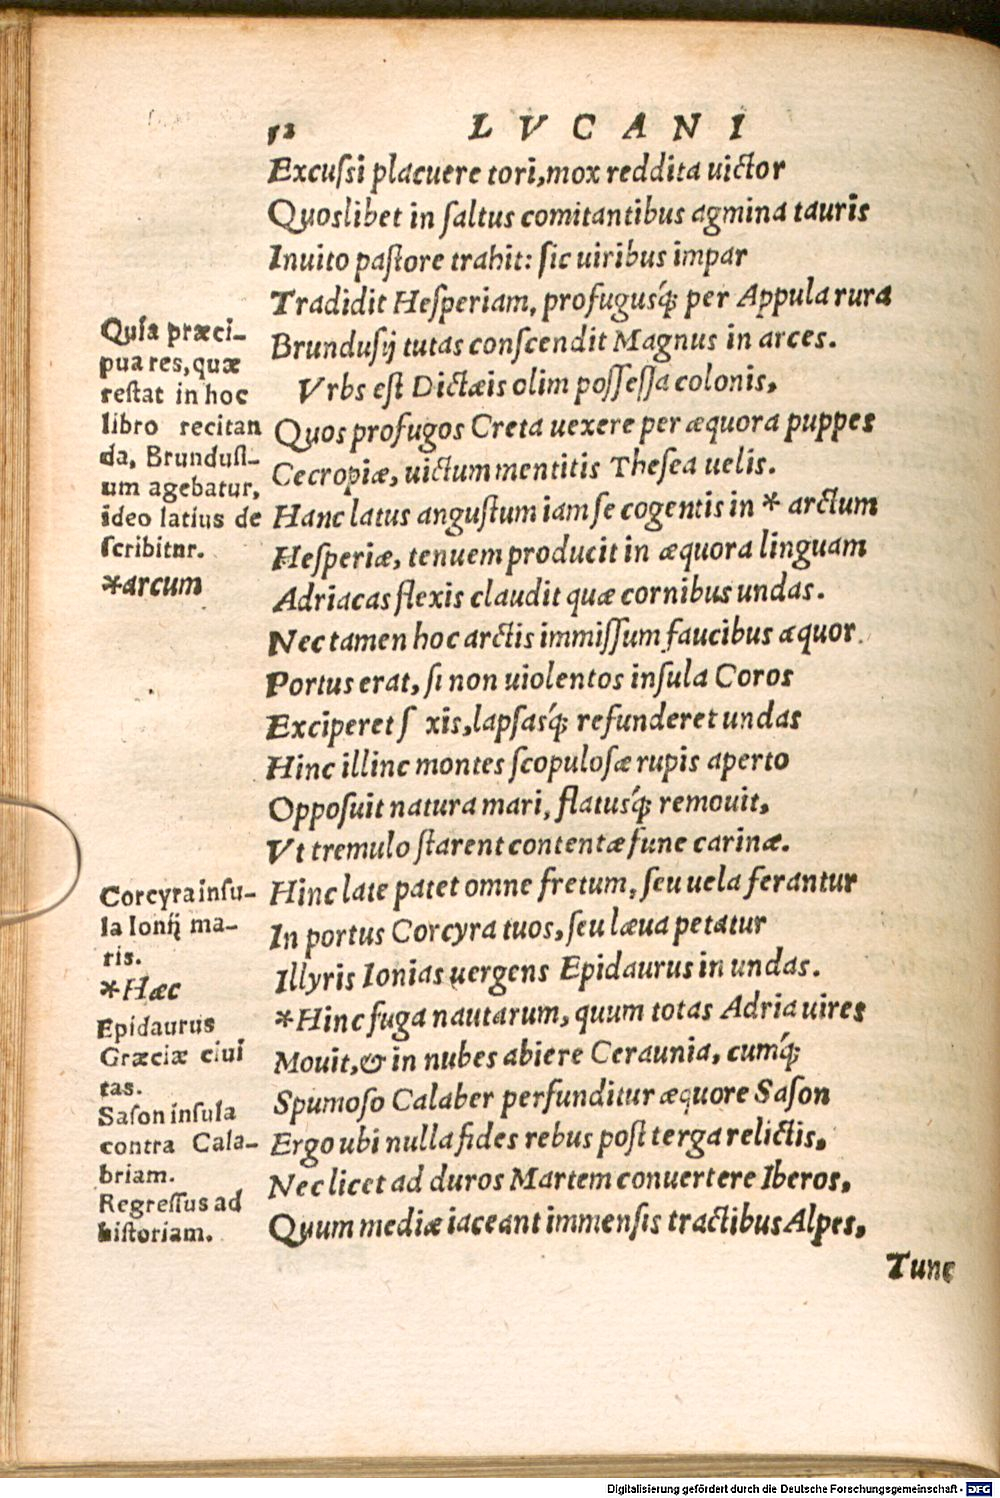 52 LVCANI
Excussi placuere tori, mox reddita uictor
Quoslibet in saltus comitantibus agmina tauris
Inuito pastore trahit: sic uiribus impar
Tradidit Hesperiam, profugusq́; per Appula rura
Brundusij tutas conscendit Magnus in arces.
Vrbs est Dictæis olim possessa colonis,
Quos profugos Creta uexere per æquora puppes
Cecropiæ, uictum mentitis Thesea uelis.
Hanc latus angustum iam se cogentis in * arctum
Hesperiæ, tenuem producit in æquora linguam
Adriacas flexis claudit quæ cornibus undas.
Nec tamen hoc arctis immissum faucibus æquor
Portus erat, si non uiolentos insula Coros
Exciperet s xis, lapsasq́; refunderet undas
Hinc illinc montes scopulosæ rupis aperto
Opposuit natura mari, flatusq́; remouit,
Vt tremulo starent contentæ fune carinæ.
Hinc late patet omne fretum, seu uela ferantur
In portus Corcyra tuos, seu læua petatur
Illyris Ionias uergens Epidaurus in undas.
*Hinc fuga nautarum, quum totas Adria uires
Mouit, & in nubes abiere Ceraunia, cumq́;
Spumoso Calaber perfunditur æquore Sason
Ergo ubi nulla fides rebus post terga relictis,
Nec licet ad duros Martem conuertere Iberos,
Quum mediæ iaceant immensis tractibus Alpes,
Tunc
Quia præci-
pua res, quæ
restat in hoc
libro recitan
da, Brundusi-
um agebatur,
ideo latius de
scribitur.
*arcum
Corcyra insu-
la Ionij ma-
ris.
*Hæc
Epidaurus
Græciæ ciui
tas.
Sason insula
contra Cala-
briam.
Regressus ad
historiam.
Digitalisierung gefördert durch die Deutsche Forschungsgemeinschaft - DFG